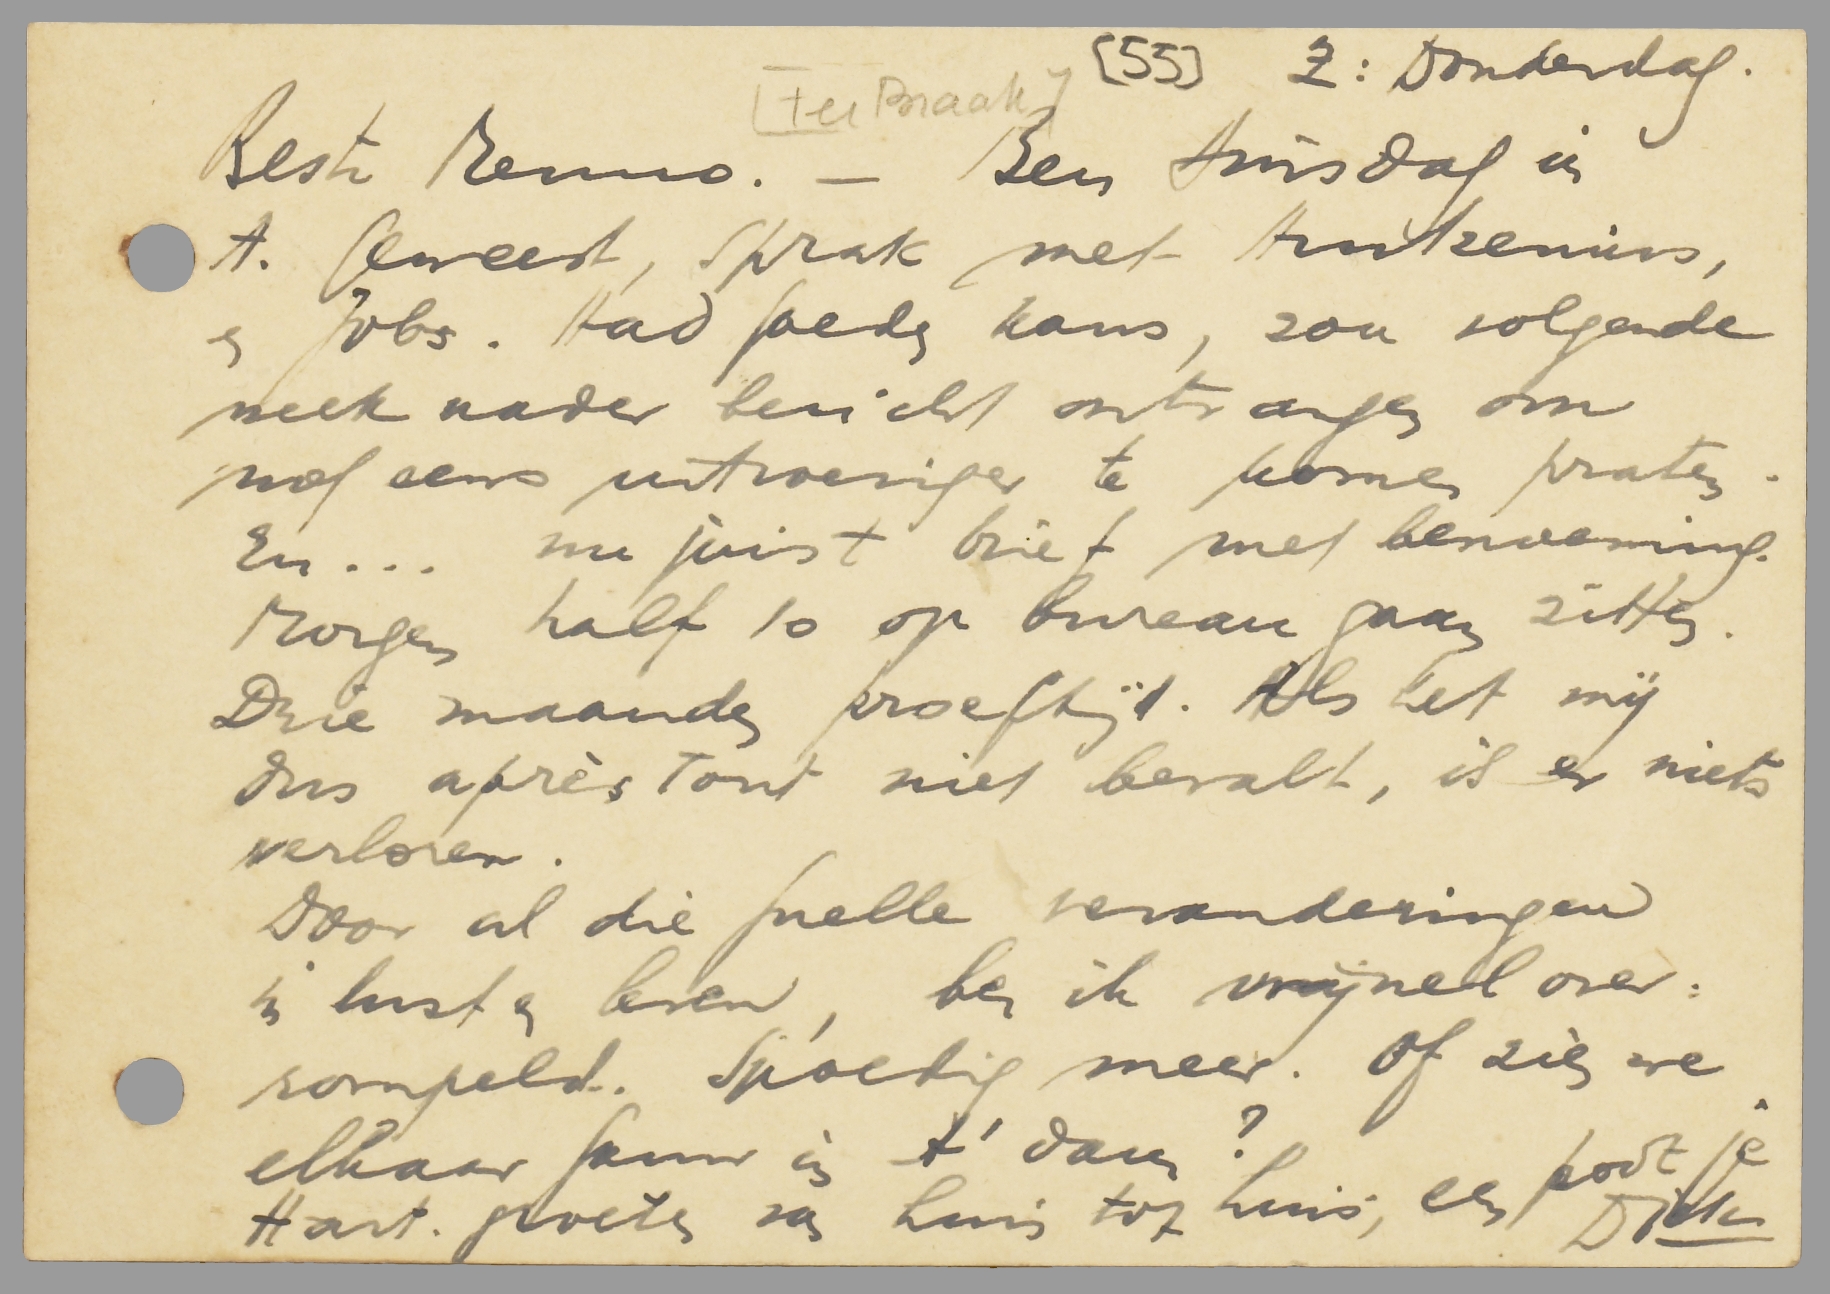 [55] Z: Donderdag.
[ter Braak]
Beste Menno. — Ben dinsdag in
A. geweest, sprak met
en Jobs. Had goede kans, zou volgende
week nader bericht ontvangen om
nog eens uitvoeriger te komen praten.
En... nu juist brief met benoeming.
Morgen half 10 op bureau gaan zitten.
Drie maanden proeftijd. Als het mij
dus après tout niet bevalt, is er niets
verloren.
Door al die snelle veranderingen
in lust en leven, ben ik vrijwel over:
rompeld. Spoedig meer. Of zien we
elkaar gauw in A'dam?
Hart. groeten van huis tot huis, een poot je
Dick